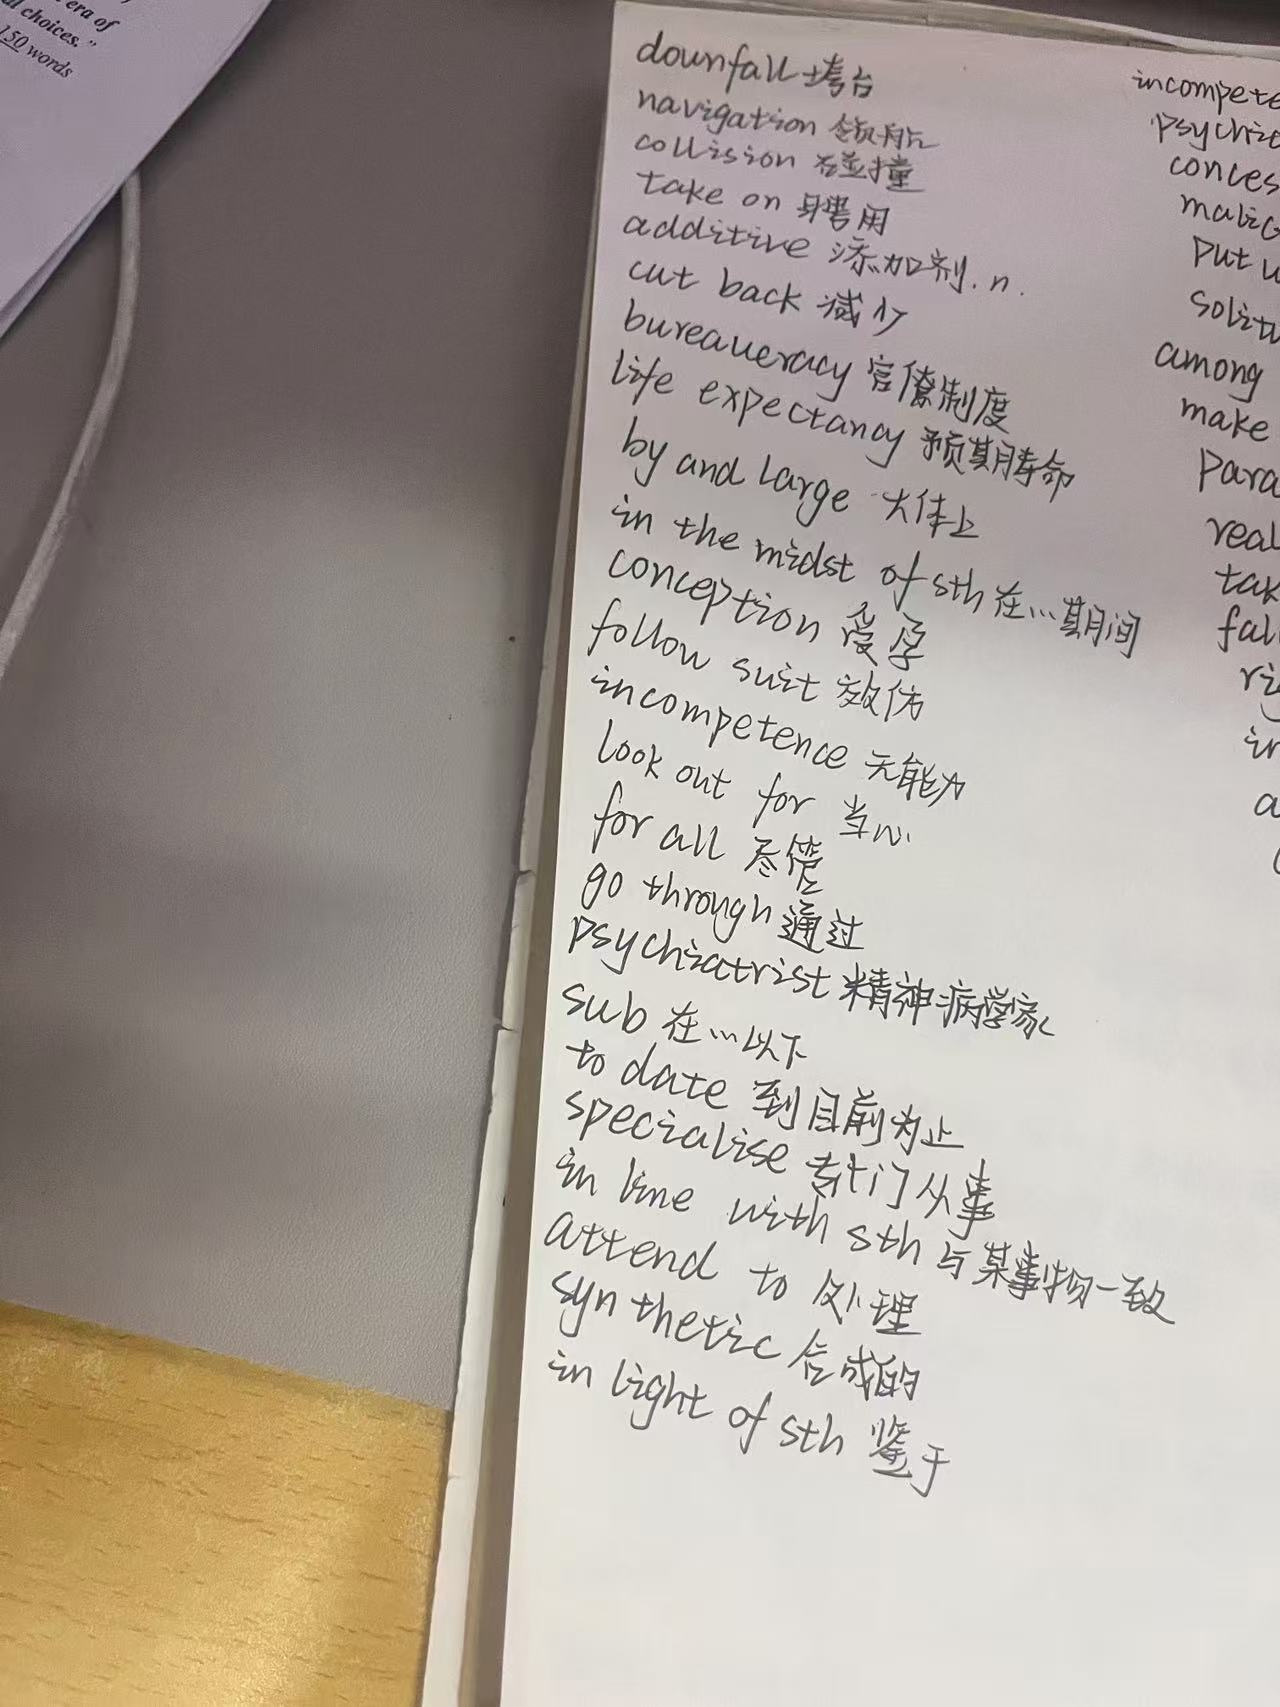 era of
choices."
150 words
downfall 垮台
navigation 领航
collision 碰撞
take on 聘用
additive 添加剂.n.
cut back 减少
bureaueracy 官僚制度
life expectancy 预期寿命
by and large 大体上
in the midst of sth 在…期间
conception 受孕
follow suit 效仿
incompetence 无能力
look out for 当心
for all 尽管
go through 通过
psychiatrist 精神病学家
sub 在…以下
to date 到目前为止
specialise 专门从事
in line with sth 与某事物一致
attend to 处理
synthetic 合成的
in light of sth 鉴于
among
make